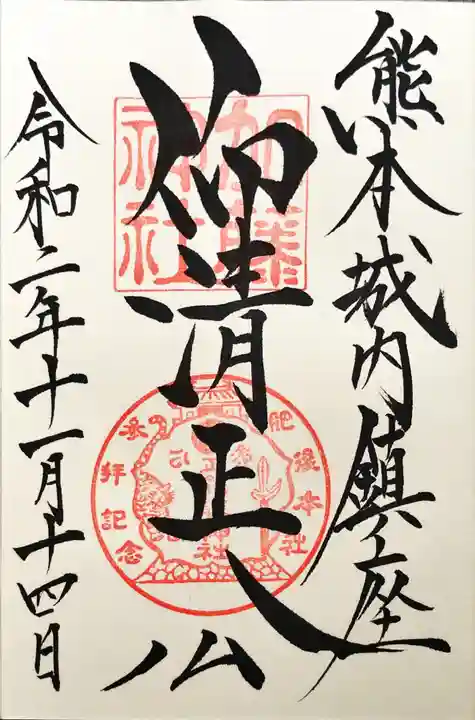 熊本城内鎮座
仰清正公
加藤
神社
肥後本社
参拝記念
令和二年十一月十四日